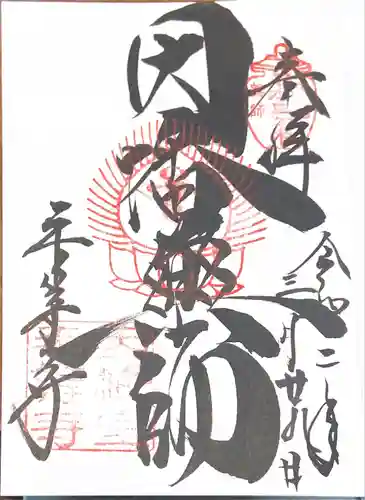 奉拝
令和二年
三月廿九日
因幡薬師
平等寺